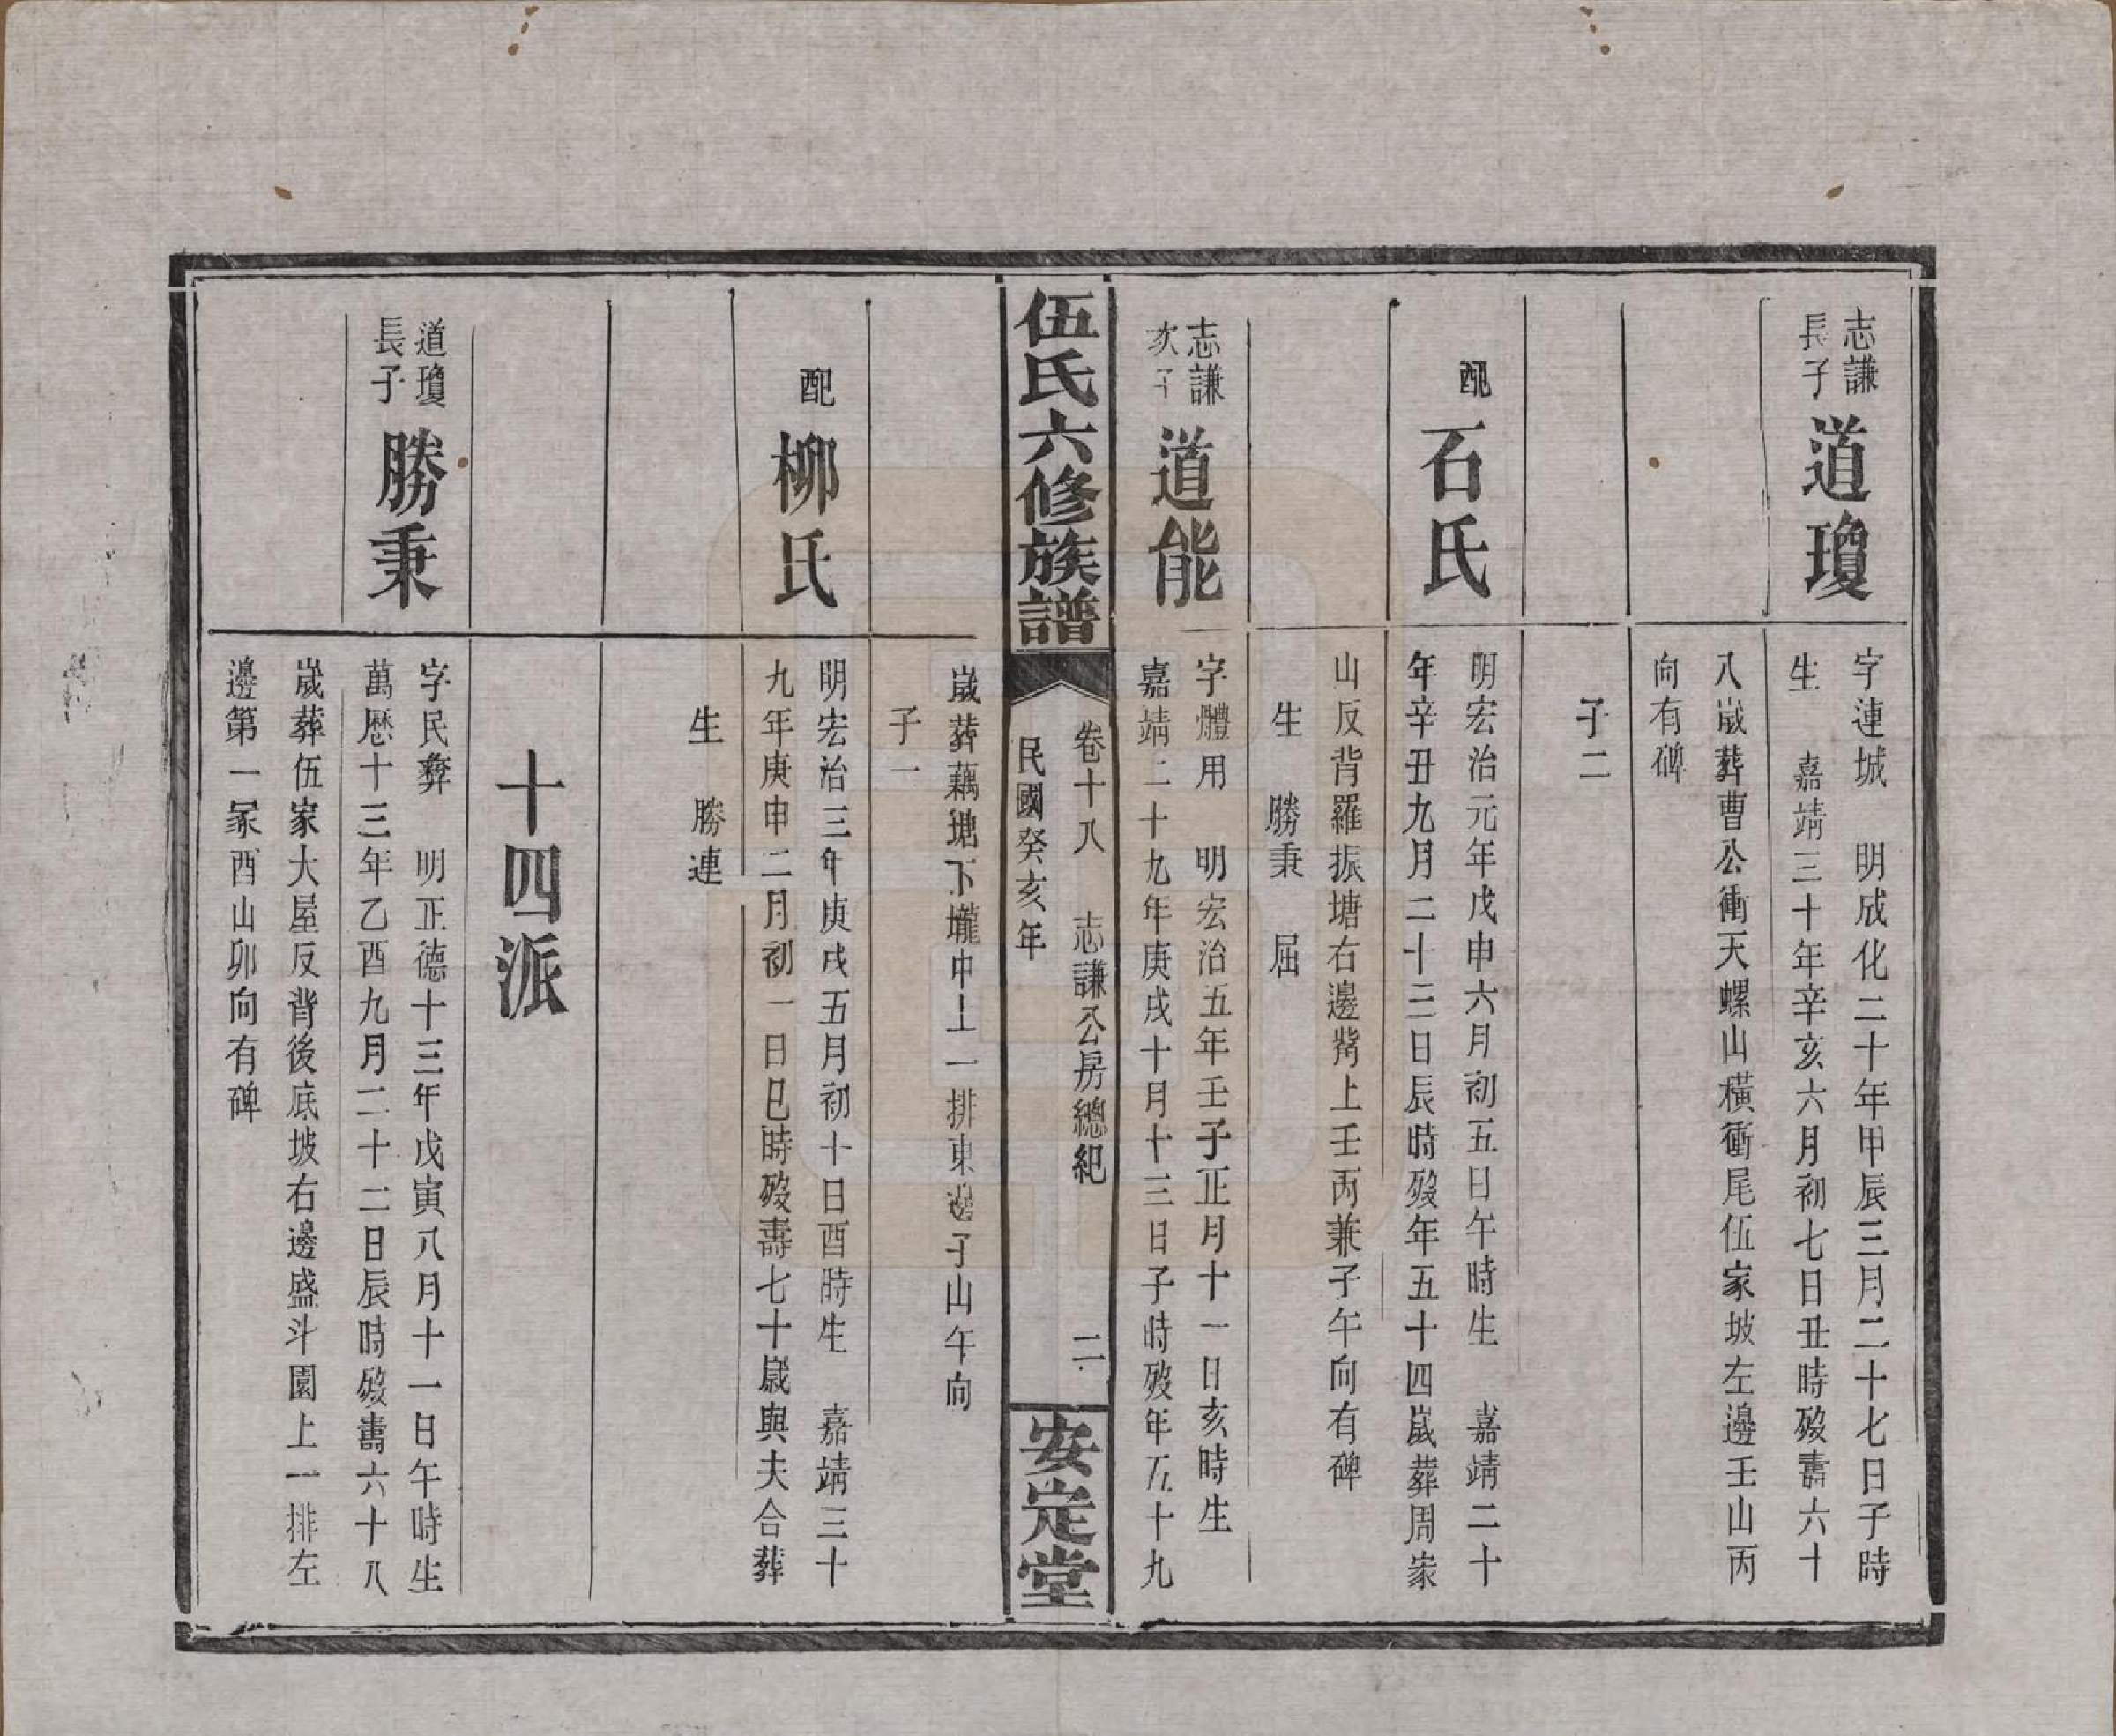 志謙
長子
道瓊
字連城　明成化二十年甲辰三月二十七日子時
生　嘉靖三十年辛亥六月初七日丑時歿壽六十
八歲葬曹公衝天螺山橫衝尾伍家坡左邊壬山丙
向有碑
子二
配
石氏
明宏治元年戊申六月初五日午時生　嘉靖二十
年辛丑九月二十三日辰時歿年五十四歲葬周家
山反背羅振塘右邊嘴上壬丙兼子午向有碑
生　勝秉　屈
志謙
次子
道能
字體用　明宏治五年壬子正月十一日亥時生
嘉靖二十九年庚戌十月十三日子時歿年五十九
伍氏六修族譜
卷十八　志謙公房總紀　二
民國癸亥年
安定堂
歲葬藕塘下壠中上一排東邊子山午向
子一
配
柳氏
明宏治三年庚戌五月初十日酉時生　嘉靖三十
九年庚申二月初一日巳時歿壽七十歲與夫合葬
生　勝連
十四派
道瓊
長子
勝秉
字民彝　明正德十三年戊寅八月十一日午時生
萬曆十三年乙酉九月二十二日辰時歿壽六十八
歲葬伍家大屋反背後底坡右邊盛斗園上一排左
邊第一冢酉山卯向有碑